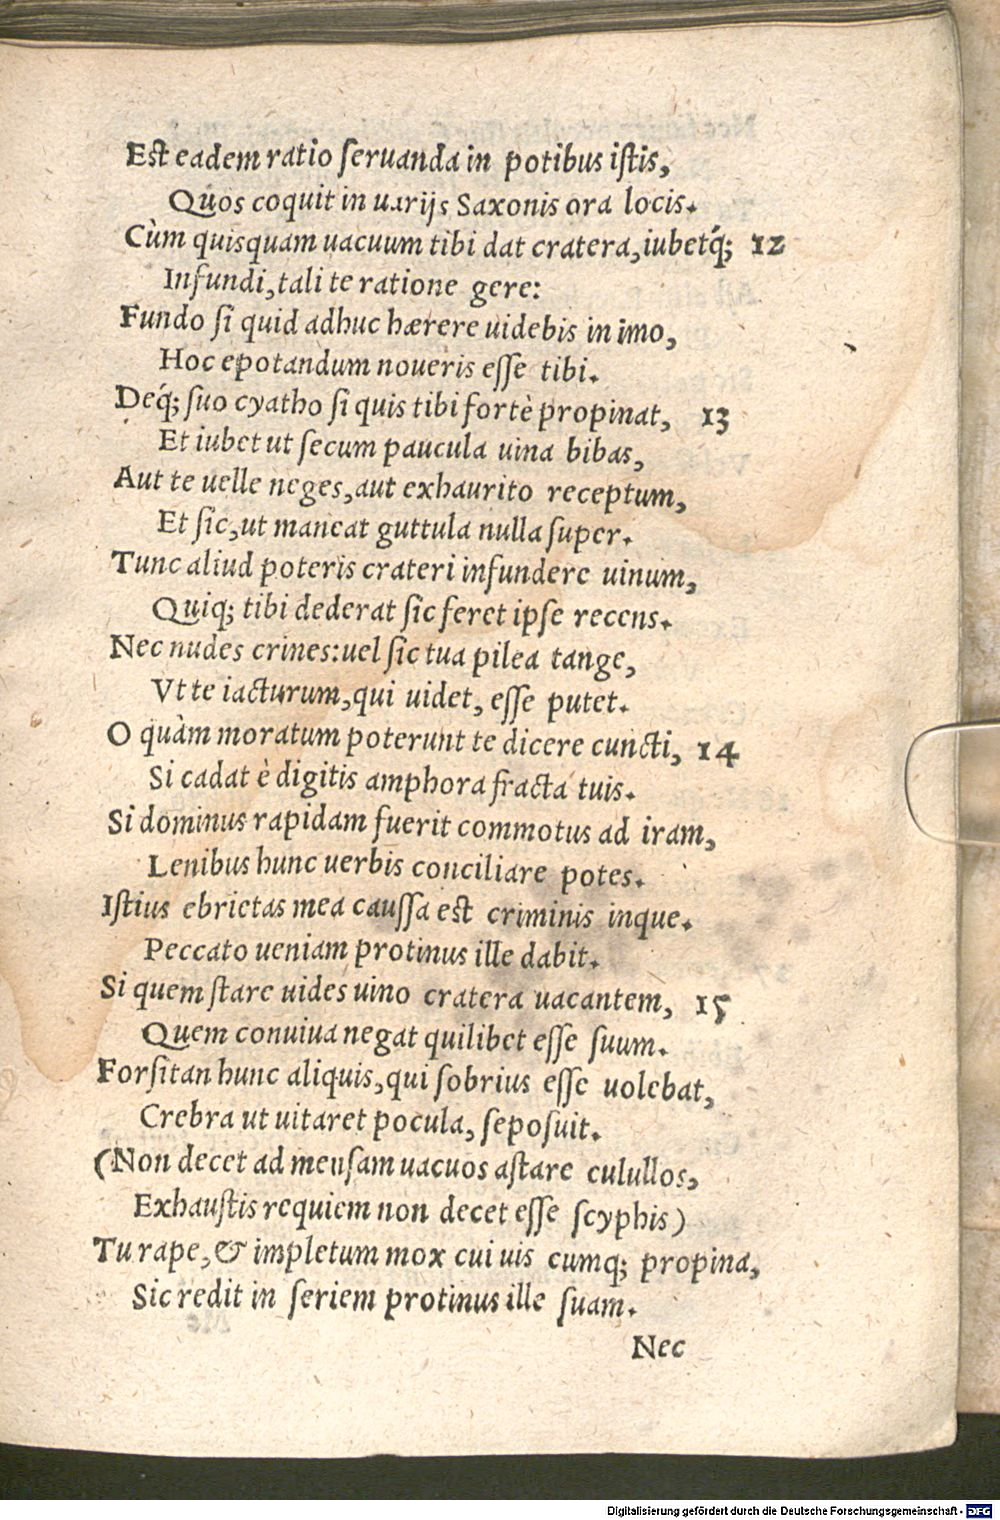 Est eadem ratio seruanda in potibus istis,
Quos coquit in uarijs Saxonis ora locis.
Cùm quisquam uacuum tibi dat cratera, iubetq́; 12
Infundi, tali te ratione gere:
Fundo si quid adhuc hærere uidebis in imo,
Hoc epotandum noueris esse tibi.
Deq́; suo cyatho si quis tibi fortè propinat, 13
Et iubet ut secum paucula uina bibas,
Aut te uelle neges, aut exhaurito receptum,
Et sic, ut maneat guttula nulla super.
Tunc aliud poteris crateri infundere uinum,
Quiq; tibi dederat sic feret ipse recens.
Nec nudes crines: uel sic tua pilea tange,
Vt te iacturum, qui uidet, esse putet.
O quàm moratum poterunt te dicere cuncti, 14
Si cadat è digitis amphora fracta tuis.
Si dominus rapidam fuerit commotus ad iram,
Lenibus hunc uerbis conciliare potes.
Istius ebrietas mea caussa est criminis inque.
Peccato ueniam protinus ille dabit.
Si quem stare uides uino cratera uacantem, 15
Quem conuiua negat quilibet esse suum.
Forsitan hunc aliquis, qui sobrius esse uolebat,
Crebra ut uitaret pocula, seposuit.
(Non decet ad mensam uacuos astare culullos,
Exhaustis requiem non decet esse scyphis)
Tu rape, & impletum mox cui uis cumq; propina,
Sic redit in seriem protinus ille suam.
Nec
Digitalisierung gefördert durch die Deutsche Forschungsgemeinschaft - DFG